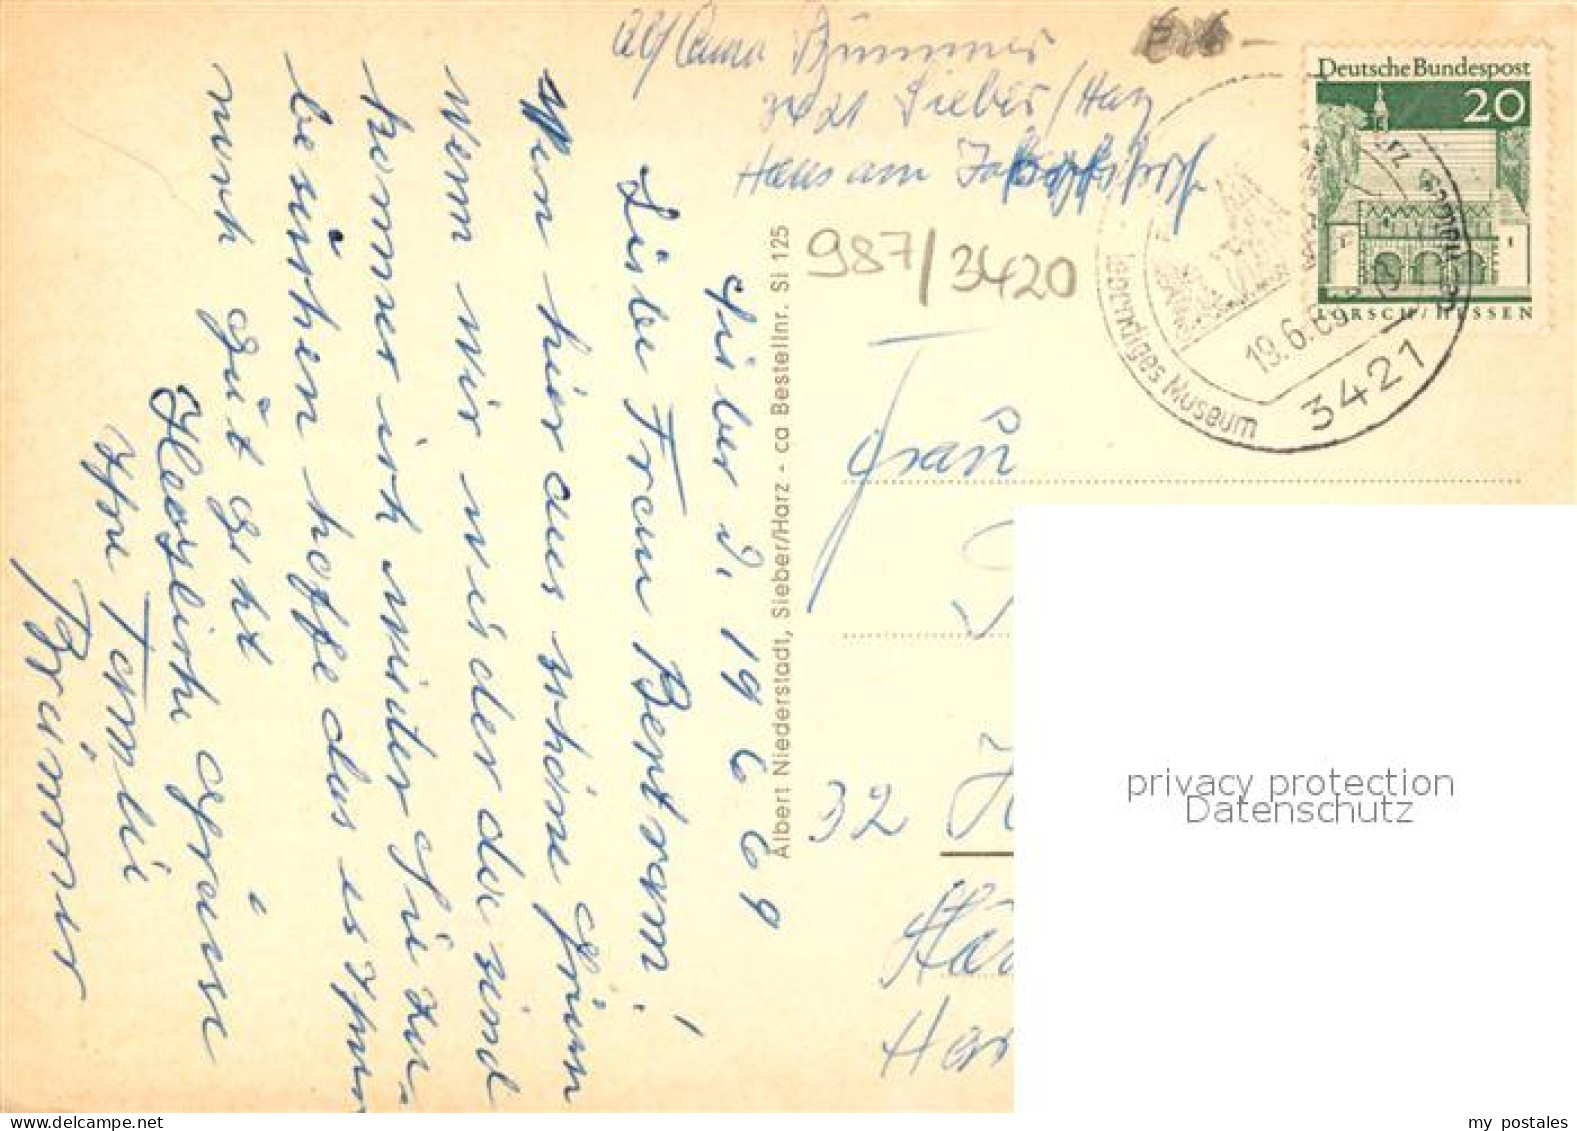 Anna Brümmer
3421 Sieber/Harz
Haus am
987/3420
Deutsche Bundespost
20
LORSCH/HESSEN
Lebendiges Museum
19.6.69
3421
Sieber d. 19 6 69
Liebe Frau Bertram!
Von hier aus schöne Grüße
Wenn wir wieder da sind
komme ich wieder Sie zu-
besuchen hoffe das es Ihnen
noch gut geht
Herzliche Grüsse
Ihre Familie
Brümmer
Albert Niederstadt, Sieber/Harz - ca Bestellnr. SI 125
Frau
32 H
Har
privacy protection
Datenschutz
my postales
www.delcampe.net